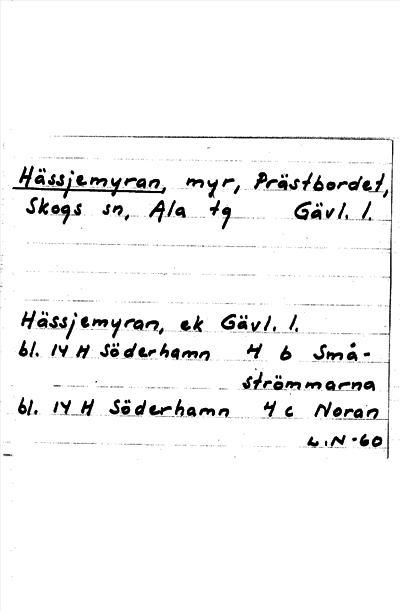 Hässjemyran, myr, Prästbordet,
Skogs sn, Ala tg Gävl. l.
Hässjemyran, ek Gävl. l.
bl. 14 H Söderhamn 4 b Små-
strömmarna
bl. 14 H Söderhamn 4 c Noran
L.N-60